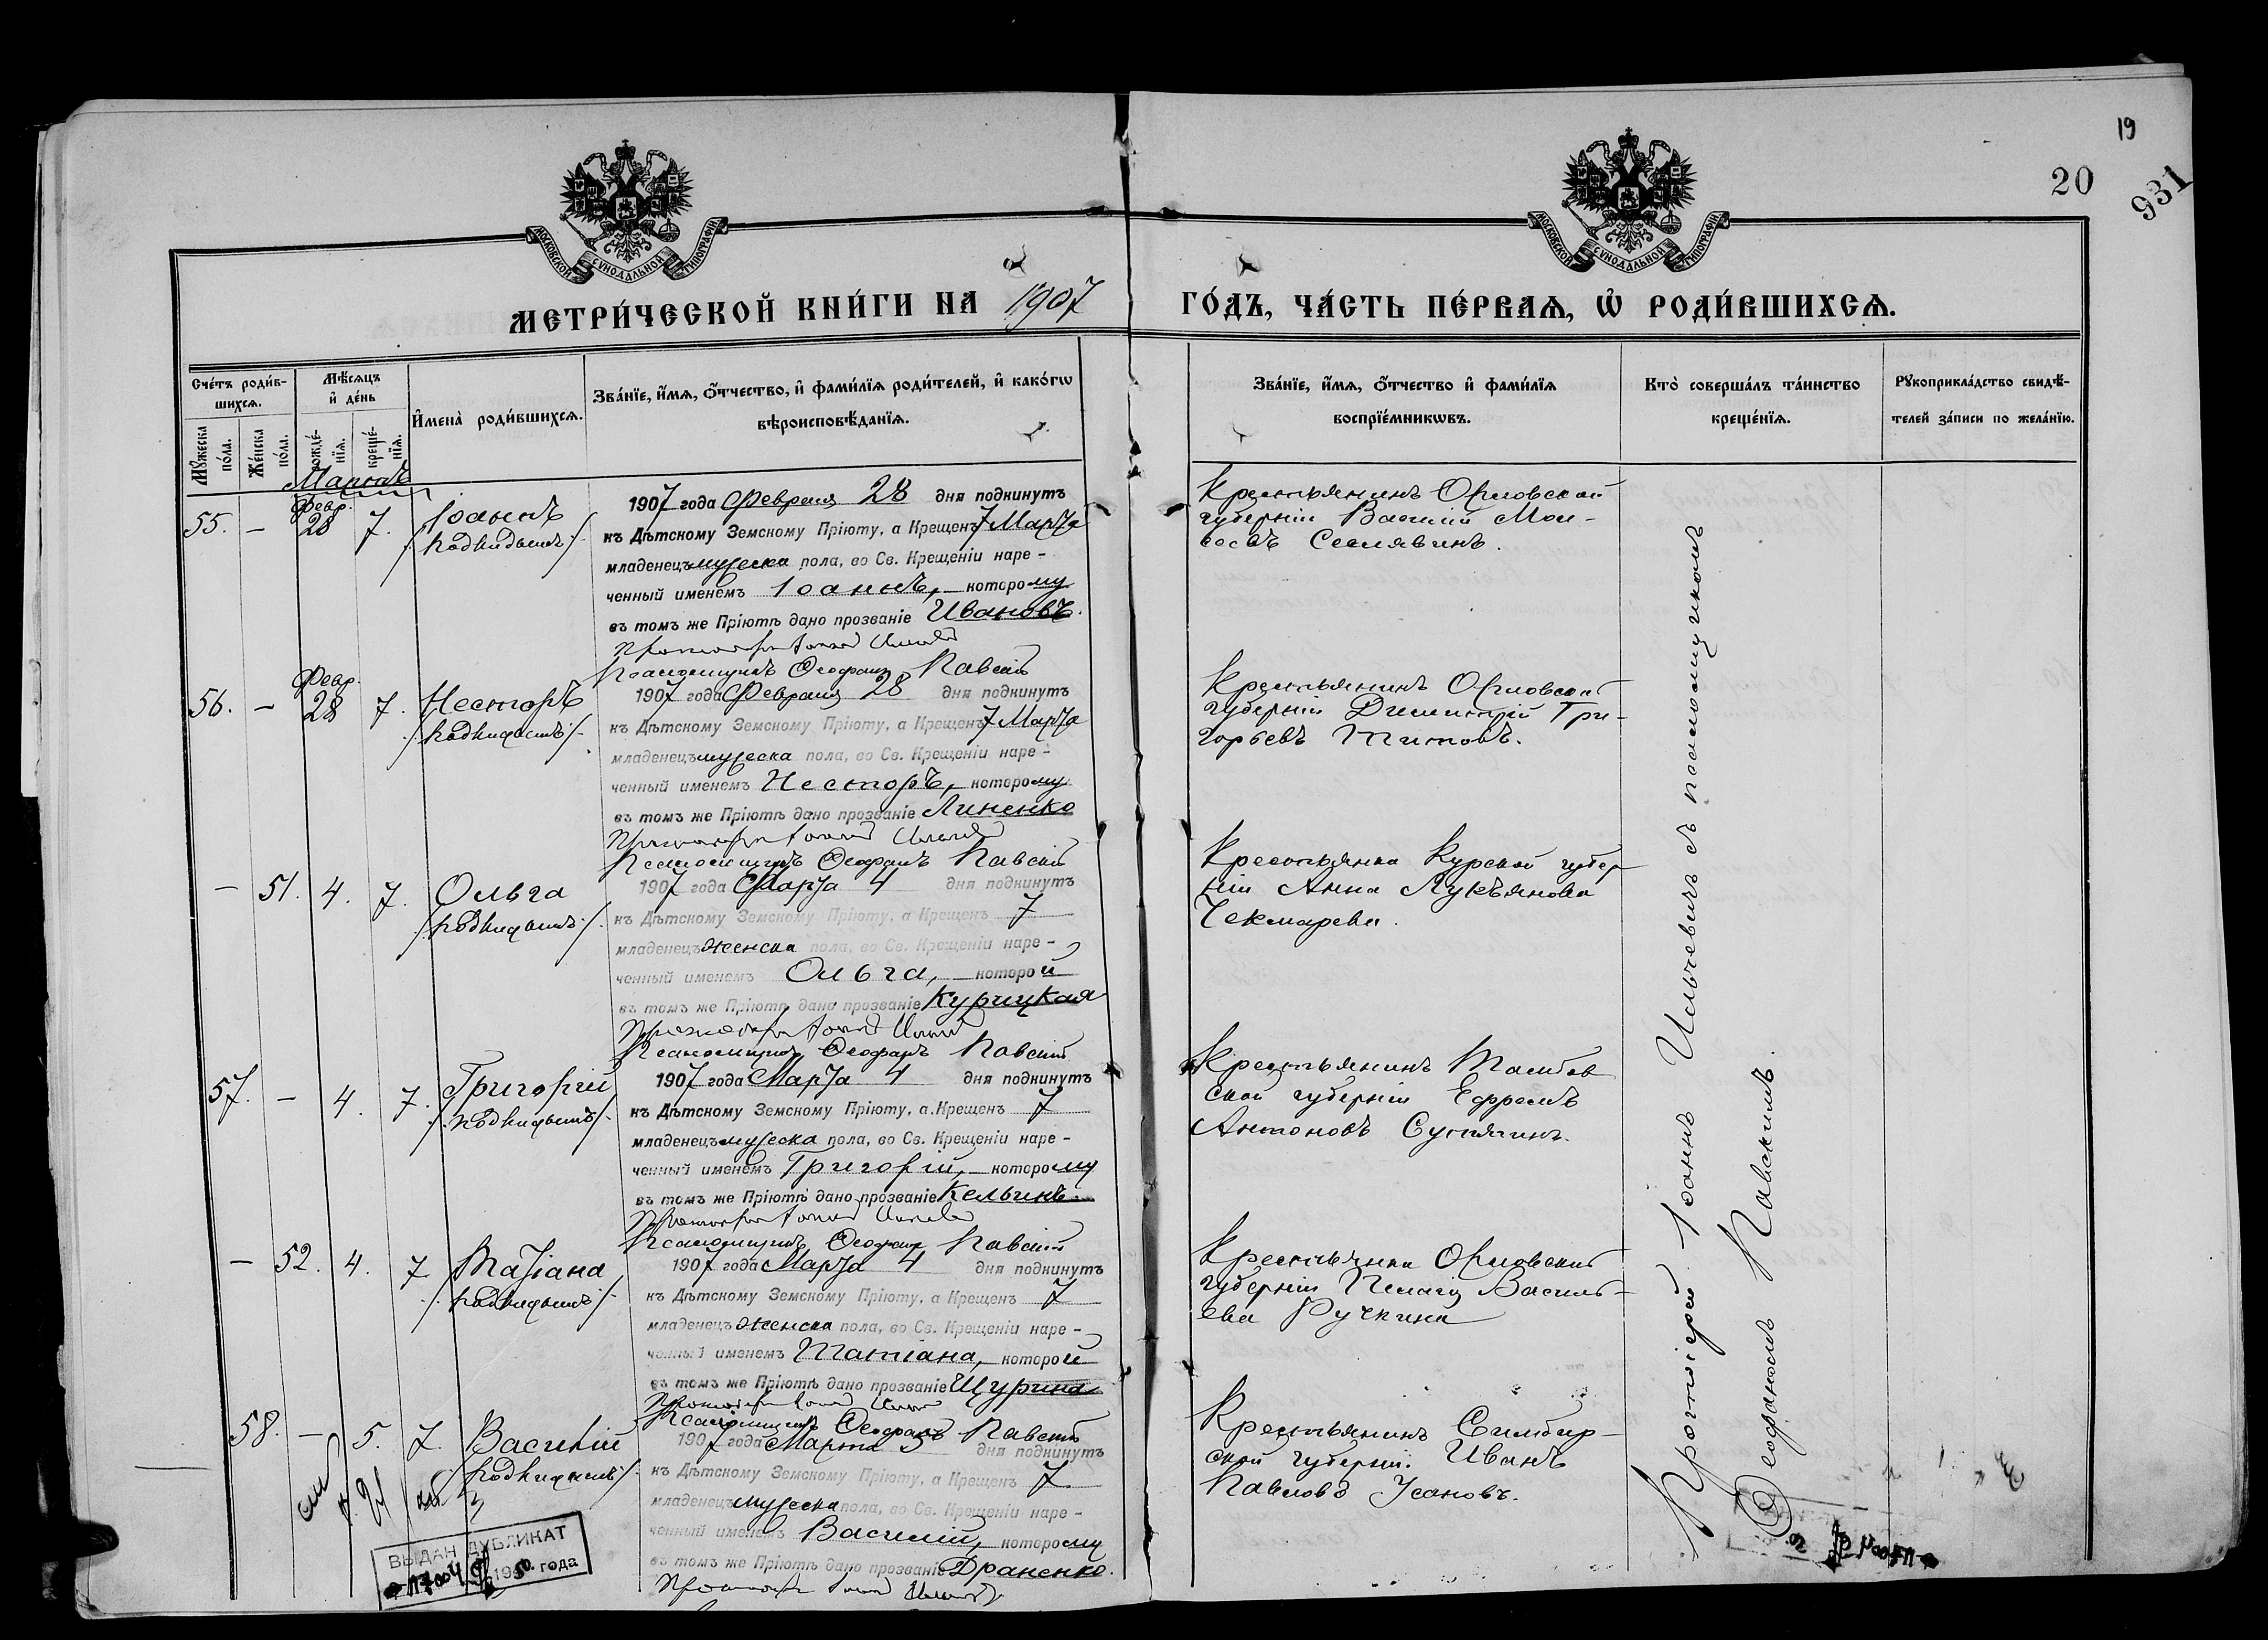 19
20
931
МОСКОВСКОЙ СѴНОДАЛЬНОЙ ТИПОГРАФІИ
МОСКОВСКОЙ СѴНОДАЛЬНОЙ ТИПОГРАФІИ
МЕТРИ́ЧЕСКОЙ КНИ́ГИ НА 1907 ГО́ДЪ, ЧА́СТЬ ПЕ́РВАѦ, Ѡ҆ РОДИ́ВШИХСѦ.
Сче́тъ роди́в-
шихсѧ.
Мꙋ́жеска
по́ла.
Же́нска
по́ла.
Мѣ́сѧцъ
и҆ де́нь
рожде́-
нїѧ.
креще́-
нїѧ.
И҆мена̀ роди́вшихсѧ.
Зва́нїе, и҆́мѧ, ѻ҆́тчество, и҆ фами́лїѧ роди́телей, и҆ како́гѡ
вѣроисповѣ́данїѧ.
Зва́нїе, и҆́мѧ, ѻ҆́тчество и҆ фами́лїѧ
воспрїе́мникѡвъ.
Кто̀ соверша́лъ та́инство
креще́нїѧ.
Рꙋкоприкла́дство свидѣ́-
телей за́писи по жела́нїю.
Мартъ
55. – Февр. 28 7. Іоаннъ
/подкидышъ/
1907 года Февраля 28 дня подкинутъ
къ Дѣтскому Земскому Пріюту, а Крещенъ 7 Марта
младенецъ мужеска пола, во Св. Крещеніи наре-
ченный именемъ Іоаннъ, которому
въ томъ же Пріютѣ дано прозваніе Ивановъ.
Псаломщикъ Ѳеофанъ Павскій
Крестьянинъ Орловской
губерніи Василій Мои-
сеевъ Селявинъ.
56. – Февр. 28 7. Несторъ
/подкидышъ/
1907 года Февраля 28 дня подкинутъ
къ Дѣтскому Земскому Пріюту, а Крещенъ 7 Марта
младенецъ мужеска пола, во Св. Крещеніи наре-
ченный именемъ Несторъ, которому
въ томъ же Пріютѣ дано прозваніе Линенко
Псаломщикъ Ѳеофанъ Павскій
Крестьянинъ Орловской
губерніи Димитрій Гри-
горьевъ Титовъ.
– 51. 4. 7. Ольга
/подкидышъ/
1907 года Марта 4 дня подкинутъ
къ Дѣтскому Земскому Пріюту, а Крещенъ 7
младенецъ женска пола, во Св. Крещеніи наре-
ченный именемъ Ольга, которой
въ томъ же Пріютѣ дано прозваніе Курицкая
Псаломщикъ Ѳеофанъ Павскій
Крестьянка Курской губер
ніи Анна Лукьянова
Чекмарева.
57. – 4. 7. Григорій
/подкидышъ/
1907 года Марта 4 дня подкинутъ
къ Дѣтскому Земскому Пріюту, а Крещенъ 7
младенецъ мужеска пола, во Св. Крещеніи наре-
ченный именемъ Григорій, которому
въ томъ же Пріютѣ дано прозваніе Кельинъ
Псаломщикъ Ѳеофанъ Павскій
Крестьянинъ Тамбов
ской губерніи Ефремъ
Антоновъ
– 52. 4. 7 Татіана
/подкидышъ/
1907 года Марта 4 дня подкинутъ
къ Дѣтскому Земскому Пріюту, а Крещенъ 7
младенецъ женска пола, во Св. Крещеніи наре-
ченный именемъ Татіана, которой
въ томъ же Пріютѣ дано прозваніе Щурина
Псаломщикъ Ѳеофанъ Павскій
Крестьянка Орловской
губерніи Пелагія Василь-
ева Ручкина
58. – 5. 7. Василій
/подкидышъ/
1907 года Марта 5 дня подкинутъ
къ Дѣтскому Земскому Пріюту, а Крещенъ 7
младенецъ мужеска пола, во Св. Крещеніи наре-
ченный именемъ Василій, которому
въ томъ же Пріютѣ дано прозваніе Драненко.
Крестьянинъ Симбир-
ской губерніи. Иванъ
Павловъ Усановъ.
Протоіерей Іоаннъ Ильичевичъ съ псаломщикомъ
Ѳеофаномъ Павскимъ.
ВЫДАН ДУБЛИКАТ
года